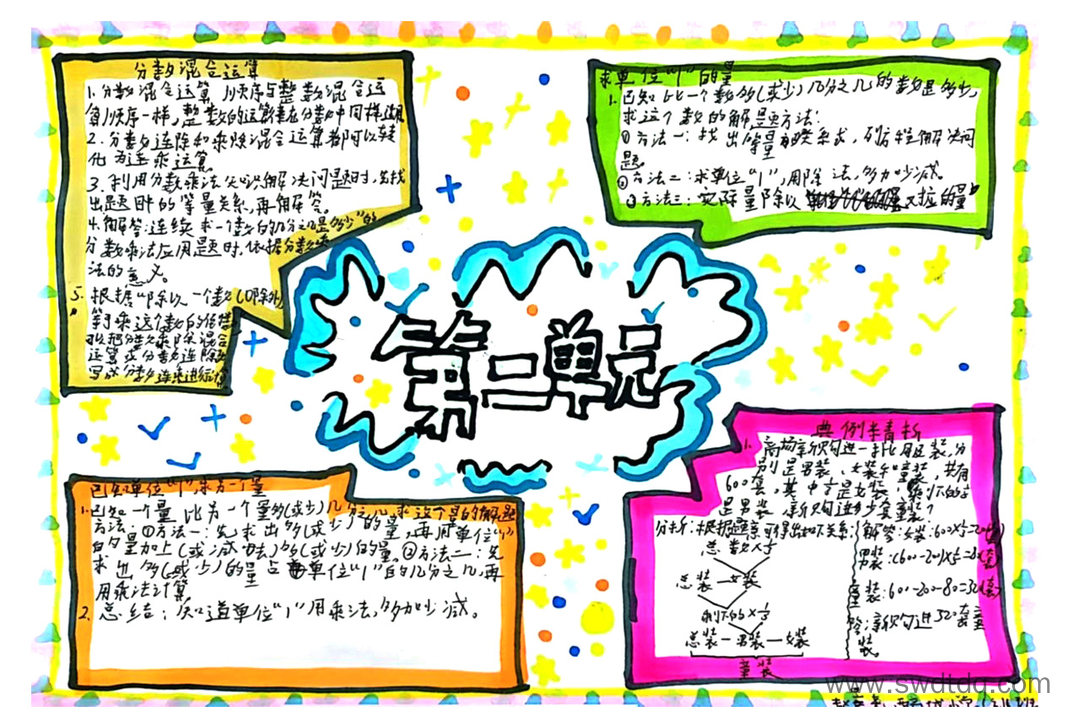 分数混合运算
1.分数混合运算顺序与整数混合运
算顺序一样,整数的运算律在分数中同样适用
2.分数连除和乘除混合运算都可以转
化为连乘运算
3.利用分数乘法知识解决问题时,先找
出题目中的等量关系,再解答。
4.解答"连续求一个数的几分之几是多少"的
分数乘法应用题时,依据分数乘
法的意义。
5.根据"除以一个数(0除外)
等于乘这个数的倒数
把分数乘除混合
运算或分数连除
写成分数连乘进行计算
求单位"1"的量
1.已知比一个数多(或少)几分之几的数是多少,
求这个数的解题方法:
①方法一:找出等量关系式,列方程解决问
题。
②方法二:求单位"1",用除法,多加少减。
③方法三:实际量除以对应的量
第二单元
已知单位"1",求另一个量
1.已知一个量比另一个量多(或少)几分之几,求这个量的解题
方法:①方法一:先求出多(或少)的量,再用单位"1"
的量加上(或减去)多(或少)的量。②方法二:先
求出多(或少)的量占单位"1"的几分之几,再
用乘法计算
2.总结:知道单位"1"用乘法,多加少减。
典例精析
1.商场新购进一批服装,分
别是男装、女装和童装,共有
600套,其中是女装,剩下的
是男装,新购进多少套童装?
分析:根据题意可得出如下关系:
总数×
总装—女装
剩下的×
总装—男装—女装
童装
解答:女装:600×
男装:(600-200)×
童装:600-200-80=320(套)
答:新购进320套童
装。
www.swdtdq.com